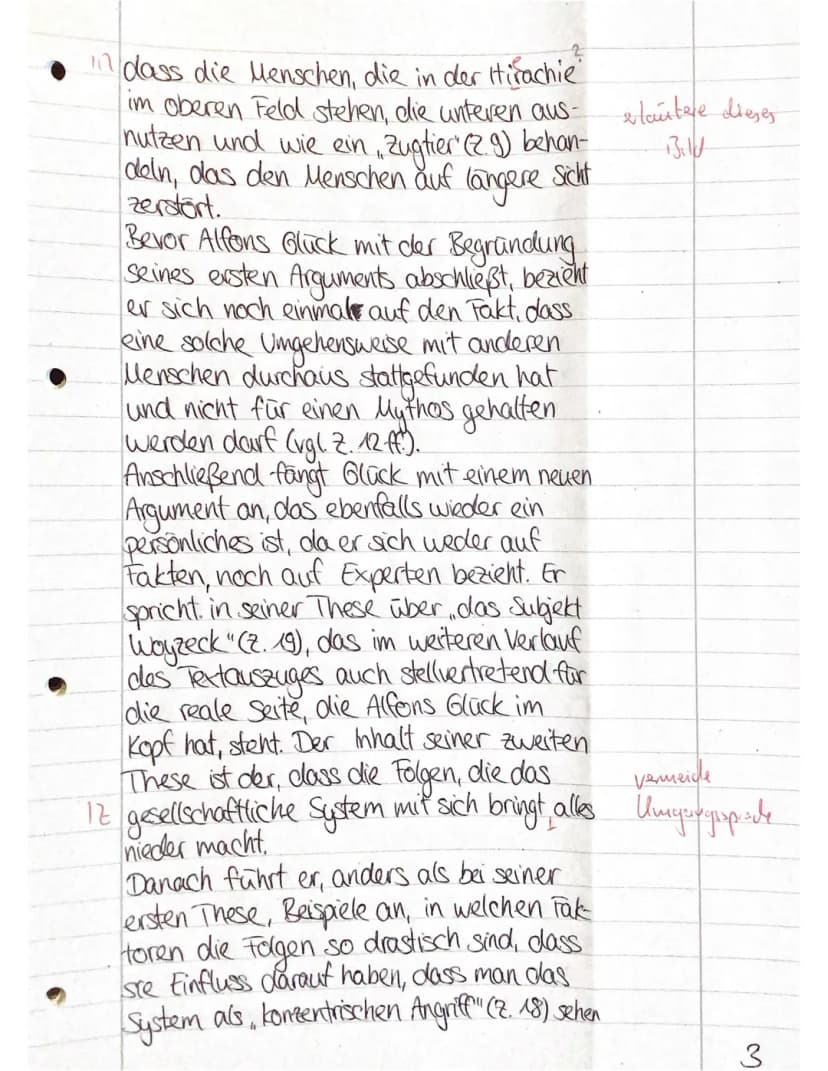 dass die Menschen, die in der Hirachie ?
im oberen Feld stehen, die unteren aus-
erläutere dieses
nutzen und wie ein „Zugtier“ (Z. 9) behan-
Bild
deln, das den Menschen auf längere Sicht
zerstört.
Bevor Alfons Glück mit der Begründung
seines ersten Arguments abschließt, bezieht
er sich noch einmal auf den Fakt, dass
eine solche Umgehensweise mit anderen
Menschen durchaus stattgefunden hat
und nicht für einen Mythos gehalten
werden darf (vgl. Z. 12 ff.).
Anschließend fängt Glück mit einem neuen
Argument an, das ebenfalls wieder ein
persönliches ist, da er sich weder auf
Fakten, noch auf Experten bezieht. Er
spricht in seiner These über „das Subjekt
Woyzeck“ (Z. 19), das im weiteren Verlauf
des Textauszuges auch stellvertretend für
die reale Seite, die Alfons Glück im
Kopf hat, steht. Der Inhalt seiner zweiten
These ist der, dass die Folgen, die das
vermeide
IZ gesellschaftliche System mit sich bringt, alles
Umgangssprache
nieder macht.
Danach führt er, anders als bei seiner
ersten These, Beispiele an, in welchen Fak-
toren die Folgen so drastisch sind, dass
sie Einfluss darauf haben, dass man das
System als „konzentrischen Angriff“ (Z. 18) sehen
3